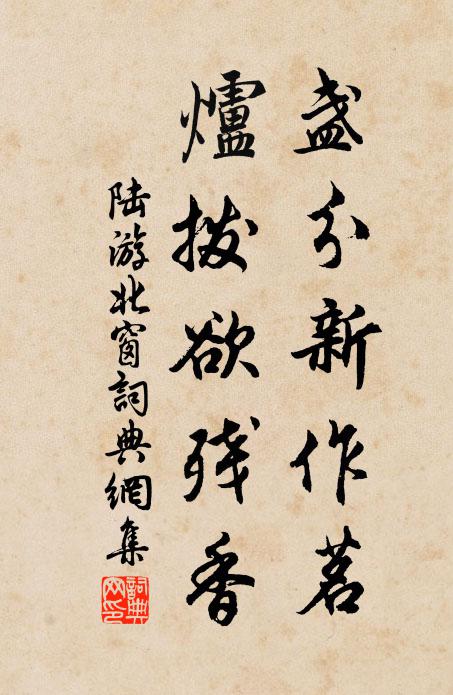 盏分新作茗
爐拨欲残香
陆游北窗詞典網集
詞典网印